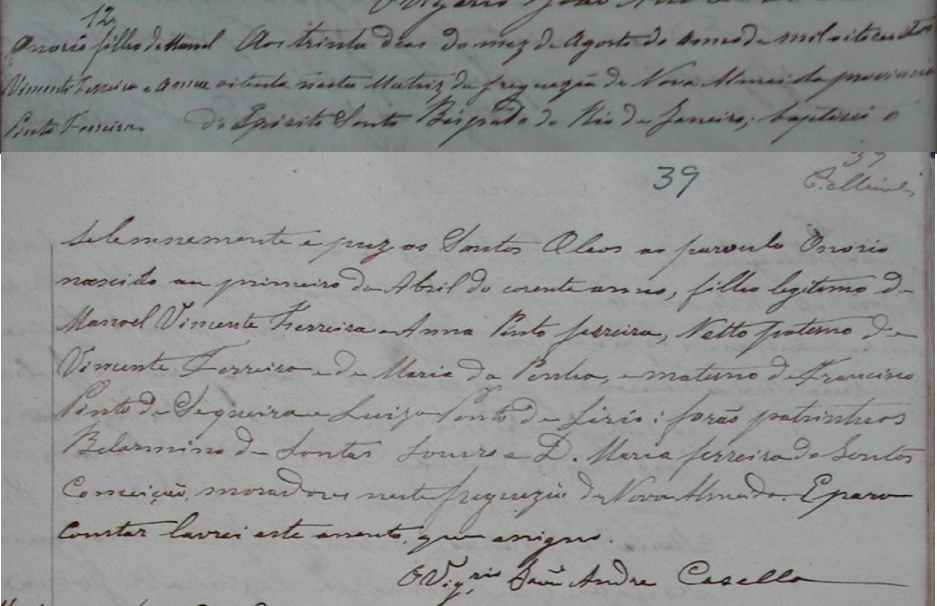 12
Onorio filho de Manoel
Vimente Ferreira e Anna
Pinto Ferreira
Aos trinta dias do mez de Agosto do anno de mil oito centos
oitenta nesta Matriz da freguezia de Nova Almeida provincia
do Espirito Santo Bispado do Rio de Janeiro, baptisei e
39
solemnemente e puz os Santos Oleos ao parvulo Onorio
nascido au primeiro de Abril do corente anno, filho legitimo de
Manoel Vimente Ferreira e Anna Pinto ferreira, Netto paterno de
Vimente Ferreira e de Maria da Penha, e materno de Francisco
Pinto de Sequeira e Luiza Pinto de Lirio; forão patrinhos
Belarmino de Santas Souza e D. Maria ferreira do Santos
Conceição, moradores nesta freguezia de Nova Almeida. E para
constar lavrei este acento, que asigno.
O Vigrio João Andre Casella